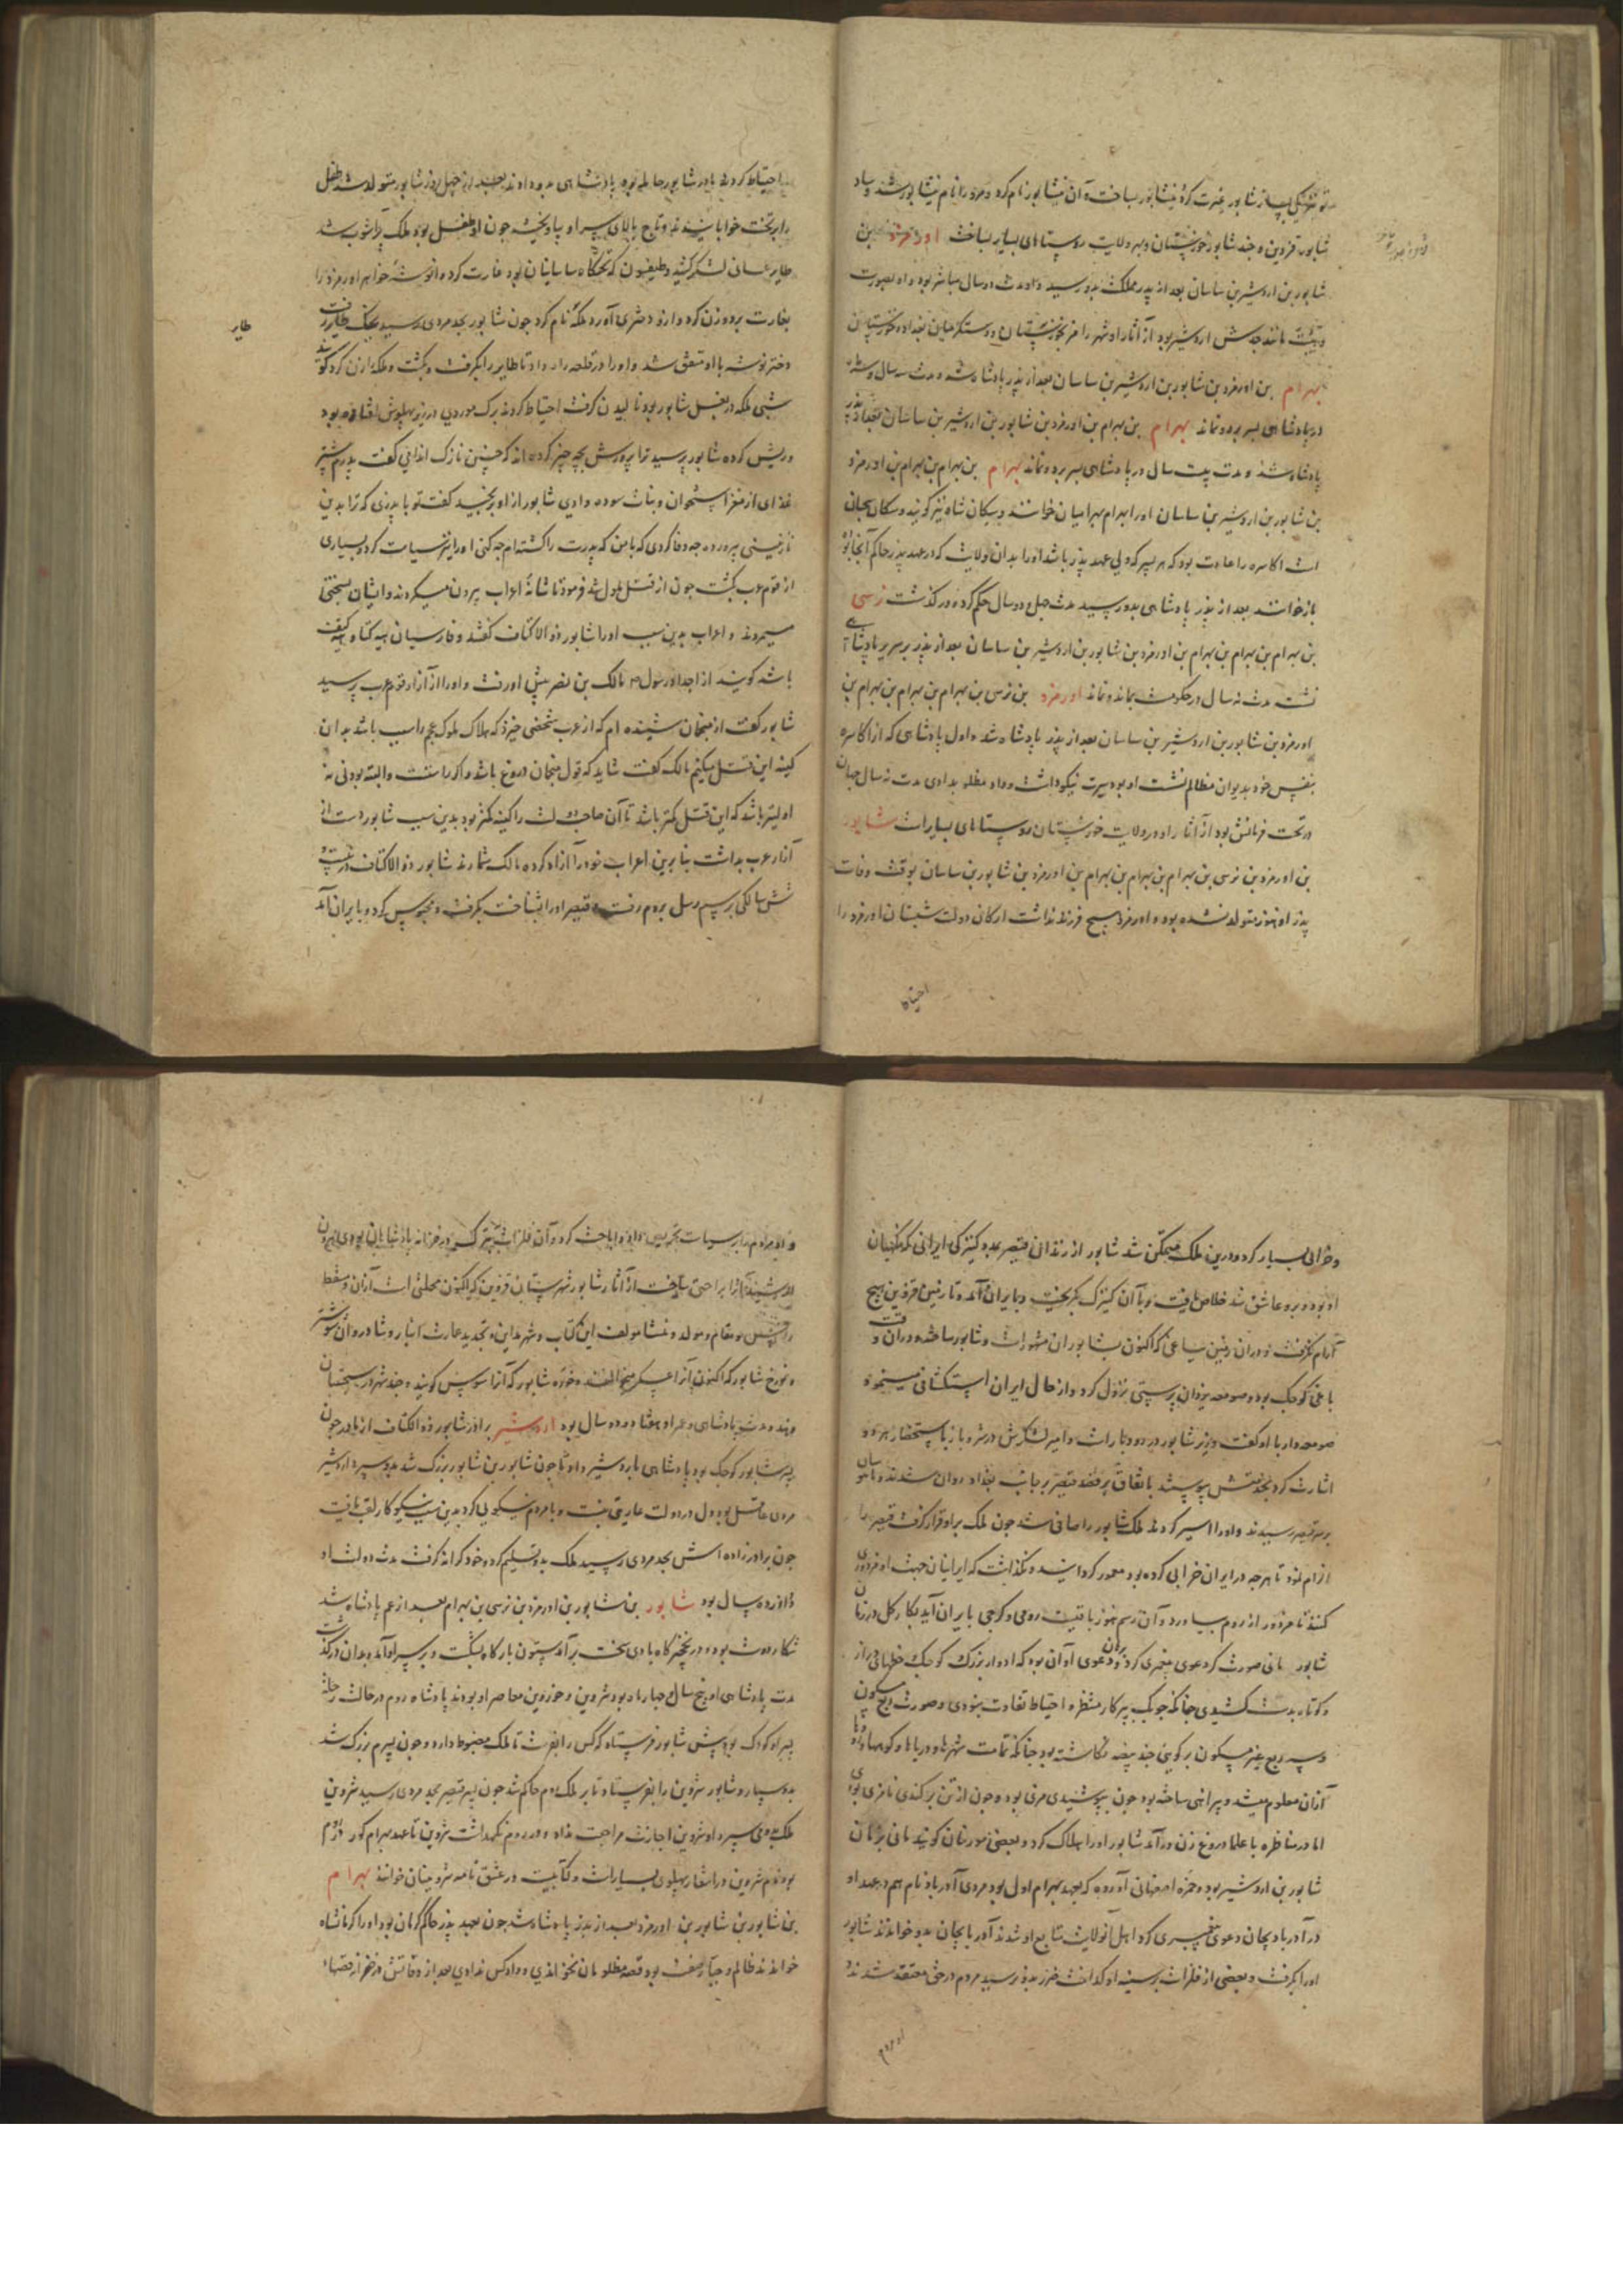 شاپور قزوین و جند شاپور خوزستان و بهر ولایت روستاهای بسیار ساخت اورمزد بن
شاپور بن اردشیر بن ساسان بعد از پدر مملکت بدو رسید و او مدت دو سال مباشر بود و او بصورت
بهرام بن اورمزد بن شاپور بن اردشیر بن ساسان بعد از پدر پادشاه شد مدت سه سال و سه
در پادشاهی بسر برد و نماند بهرام بن بهرام بن اورمزد بن شاپور بن اردشیر بن ساسان بعد از پدر
پادشاه شد و مدت بیست سال در پادشاهی بسر برد و نماند بهرام بن بهرام بن بهرام بن اورمزد
بن شاپور بن اردشیر بن ساسان او را بهرام بهرامیان خوانند و سکان شاه نیز گویند و سکان سجستان
است اکاسره را عادت بود که هر پسر که ولی عهد پدر باشد او را بدان ولایت که در عهد پدر حاکم آنجا بود
باز خوانند بعد از پدر پادشاهی بدو رسید مدت چهل و دو سال حکم کرد و درگذشت نرسی
بن بهرام بن بهرام بن بهرام بن اورمزد بن شاپور بن اردشیر بن ساسان بعد از پدر بر سریر پادشاهی
نشست مدت نه سال در حکومت بماند و نماند اورمزد بن نرسی بن بهرام بن بهرام بن بهرام بن
اورمزد بن شاپور بن اردشیر بن ساسان بعد از پدر پادشاه شد و اول پادشاهی که از اکاسره
بنفس خود بدیوان مظالم نشست او بود سیرت نیکو داشت و داد مظلوم بدادی مدت نه سال جهان
در تحت فرمانش بود از آثار او در ولایت خوزستان روستاهای بسیار است شاپور
بن اورمزد بن نرسی بن بهرام بن بهرام بن بهرام بن اورمزد بن شاپور بن ساسان بوقت وفات
پدر او هنوز متولد نشده بود و اورمزد هیچ فرزند نداشت ارکان دولت شبستان اورمزد را
احتیاط
احتیاط کردند مادر شاپور حامله بود پادشاهی بدو دادند بعد از چهل روز شاپور متولد شد طفل
را بر تخت خوابانیدند و تاج بالای سر او بیاویختند جون او طفل بود ملک پرآشوب شد
طایر غسانی لشکر کشید و طیفون که تختگاه ساسانیان بود غارت کرد و نوشه خواهر اورمزد را
بغارت برد و زن کرد و ازو دختری آورد ملکه نام کرد جون شاپور بحد مردی رسید بجنک طایر رفت
طایر
دختر نوشه با او متفق شد و او را در قلعه راه داد تا طایر را بگرفت و بکشت و ملکه را زن کرد گویند
شبی ملکه در بغل شاپور بود نالیدن گرفت احتیاط کردند برک موردی در زیر پهلوش افتاده بود
و ریش کرده شاپور پرسید ترا پرورش بچه چیز کرده اند که چنین نازک اندامی گفت پدرم بیشتر
غذای از مغز استخوان و نبات سوده دادی شاپور از او برنجید گفت تو با پدری که ترا بدین
نازنینی پرورد چه وفا کردی که با من که پدرت را کشته ام چه کنی او را نیز سیاست کرد و بسیاری
از قوم عرب بکشت جون از قتل ملول شد فرمود تا شانه اعراب بیرون میکردند و ایشان بسختی
میمردند و اعراب بدین سبب او را شاپور ذو الاکتاف گفتند و فارسیان
باشد گویند از اجداد رسول مالک بن نضر پیش او رفت و او را از آزار قوم عرب پرسید
شاپور گفت از منجمان شنیده ام که از عرب شخصی خیزد که هلاک ملوک عجم را سبب باشد بدان
کینه این قتل میکنم مالک گفت شاید که قول منجمان دروغ باشد و اگر راستست و البته بودنی
اولیتر باشد که این قتل کمتر باشد تا آن صاحب دولت را کینه کمتر بود بدین سبب شاپور دست از
آزار عرب بداشت بنابرین اعراب خود را آزاد کرده مالک شمارند شاپور ذو الاکتاف در بیست و
شش سالگی برسم رسل بروم رفت و قیصر او را بشناخت بگرفت و محبوس کرد و بایران آمد
و خرابی بسیار کرد و درین ملک متمکن شد شاپور از زندان قیصر بمدد کنیزکی ایرانی که نگهبان
او بود و برو عاشق شد خلاص یافت و با آن کنیزک بگریخت و بایران آمد و تا زمین قزوین هیچ
آرام نگرفت و در آن زمین بباغی که اکنون بشاپوران مشهورست و شاپور ساخته و در آن وقت
باغی کوچک بود و صومعه یزدان پرستی نزول کرد و از حال ایران استکشافی مینمود
صومعه دار با او گفت وزیر شاپور در رودبارست و امیر لشکرش در شروباز باستحضار هر دو
اشارت کرد بخدمتش پیوستند باتفاق بر قصد قیصر بر جانب بغداد روان شدند
بر سر قیصر رسیدند و او را اسیر کردند ملک شاپور را صافی شد جون ملک برو قرار گرفت قیصر را
الزام نمود تا هر چه در ایران خرابی کرده بود معمور گردانید و نگذاشت که ایرانیان جهت او مزدوری
کنند تا مزدور از روم بیاورد و آن رسم هنوز باقیست رومی و کرجی بایران آید بکار گل در زمان
شاپور مانی صورت گر دعوی پیغمبری کرد و دعوی او آن بود که ادوار بزرگ کوچک خطهای دراز
و کوتاه بدست کشیدی چنانکه جون پرگار مسطره احتیاط تفاوت نبودی و صورت ربع مسکون
و سه ربع غیر مسکون بر گویی چند بیضه نگاشته بود چنانکه تمامت شهرها و دریاها و کوهها
از آن معلوم میشد و پیراهنی ساخته بود جون بپوشیدی مرئی بود و جون از تن برکندی نامرئی بودی
اما در مناظره با علما دروغ زن درآمد شاپور او را هلاک کرد و بعضی مورخان گویند مانی بزمان
شاپور بن اردشیر بود و حمزه اصفهانی آورده که بعهد بهرام اول بود مردی آذرباد نام هم در عهد او
در آذربادیجان دعوی پیغمبری کرد اهل آن ولایت متابع او شدند آذربایجان بدو خوانند شاپور
او را بگرفت و بعضی از فلزات بر سینه او گداخت ضرر بدو نرسید مردم در حق معتقد شدند
او مردم
را و مقام و مولد و منشا مولف این کتاب و شهر مداین و تجدید عمارت انبار و شادروان شوشتر
هند مدت پادشاهی و عمر او هفتاد و دو سال بود اردشیر برادر شاپور ذو الاکتاف از مادر جون
پسر شاپور کوچک بود پادشاهی باردشیر داد تا جون شاپور بن شاپور بزرگ شد بدو سپرد اردشیر
مردی عاقل بود دل در دولت عاریتی نبست و با مردم نیکویی کرد بدین سبب نیکوکار لقب یافت
جون برادر زاده اش بحد مردی رسید ملک بدو تسلیم کرد و خود کرانه گرفت مدت دولت او
دوازده سال بود شاپور بن شاپور بن اورمزد بن نرسی بن بهرام بعد از عم پادشاه شد
شکار دوست بود و در نخجیرگاه بادی سخت برآمد ستون بارگاه بشکست و بر سر او آمد بدان درگذشت
مدت پادشاهی او پنج سال و چهار ماه بود شروین و خوروین معاصر او بودند پادشاه روم در حالت رحلت
پسر او کودک بود پیش شاپور فرستاد که کس را بفرست تا ملک مضبوط دارد و جون پسرم بزرگ شد
بدو سپارد شاپور شروین را بفرستاد تا بر ملک روم حاکم شد جون پسر قیصر بحد مردی رسید شروین
ملک بوی سپرد او شروین را اجازت مراجعت نداد و در روم نگهداشت شروین تا عهد بهرام گور در روم
بود نام شروین در اشعار پهلوی بسیارست و کتابیست در عشق نامه شروینان خوانند بهرام
بن شاپور بن شاپور بن اورمزد بعد از پدر پادشاه شد جون بعهد پدر حاکم کرمان بود او را کرمانشاه
خواندند ظالم و جبار صفت بود قصه مظلومان نخواندی و داد کس ندادی بعد از وفاتش